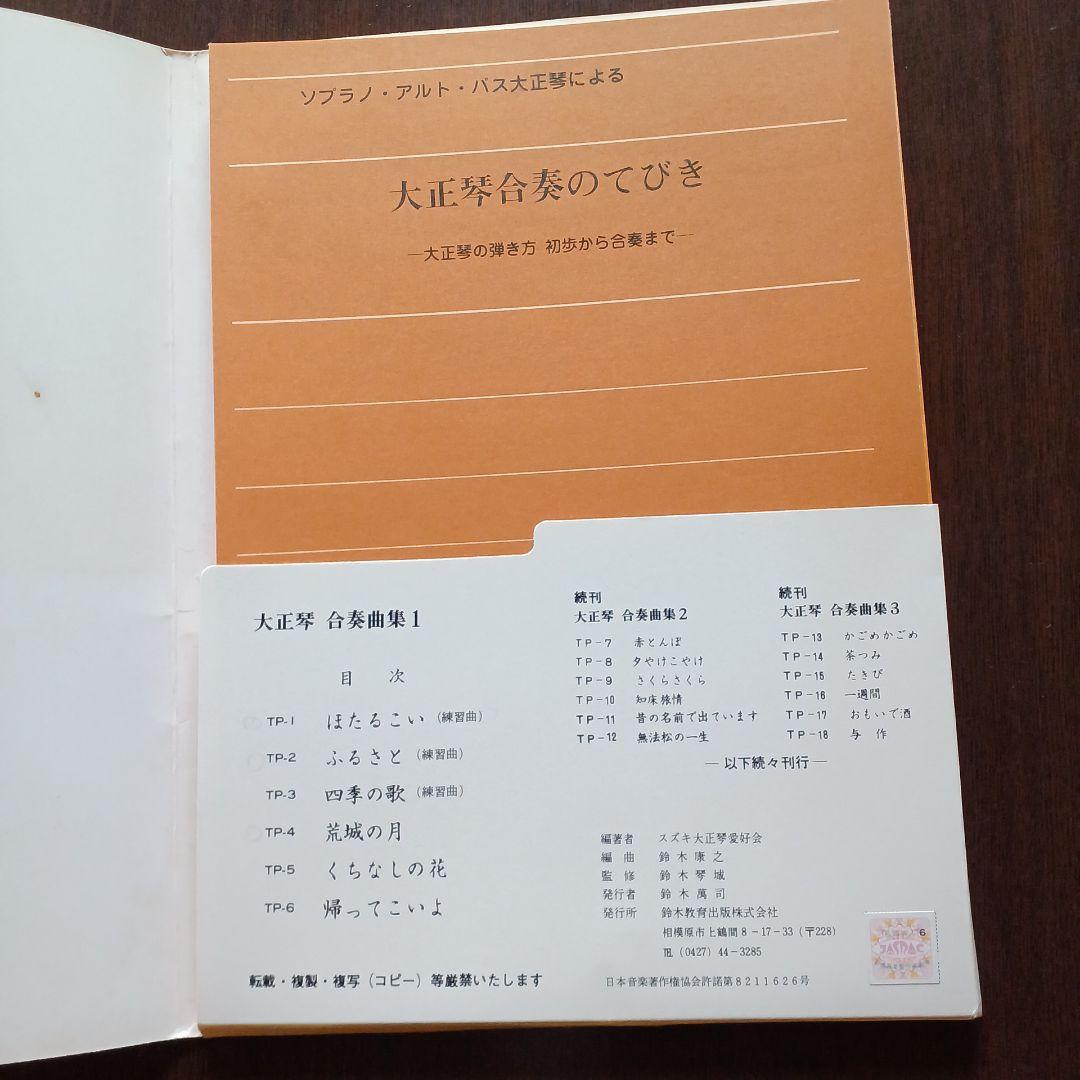 ソプラノ・アルト・バス大正琴による
大正琴合奏のてびき
—大正琴の弾き方 初歩から合奏まで—
大正琴 合奏曲集1
目 次
TP-1 ほたるこい(練習曲)
TP-2 ふるさと(練習曲)
TP-3 四季の歌(練習曲)
TP-4 荒城の月
TP-5 くちなしの花
TP-6 帰ってこいよ
転載・複製・複写(コピー)等厳禁いたします
続刊
大正琴 合奏曲集2
TP-7 赤とんぼ
TP-8 夕やけこやけ
TP-9 さくらさくら
TP-10 知床旅情
TP-11 昔の名前で出ています
TP-12 無法松の一生
続刊
大正琴 合奏曲集3
TP-13 かごめかごめ
TP-14 茶つみ
TP-15 たきび
TP-16 一週間
TP-17 おもいで酒
TP-18 与 作
—以下続々刊行—
編著者 スズキ大正琴愛好会
編 曲 鈴木康之
監 修 鈴木琴城
発行者 鈴木萬司
発行所 鈴木教育出版株式会社
相模原市上鶴間8-17-33(〒228)
℡(0427)44-3285
日本音楽著作権協会許諾第8211626号
6
JASRAC